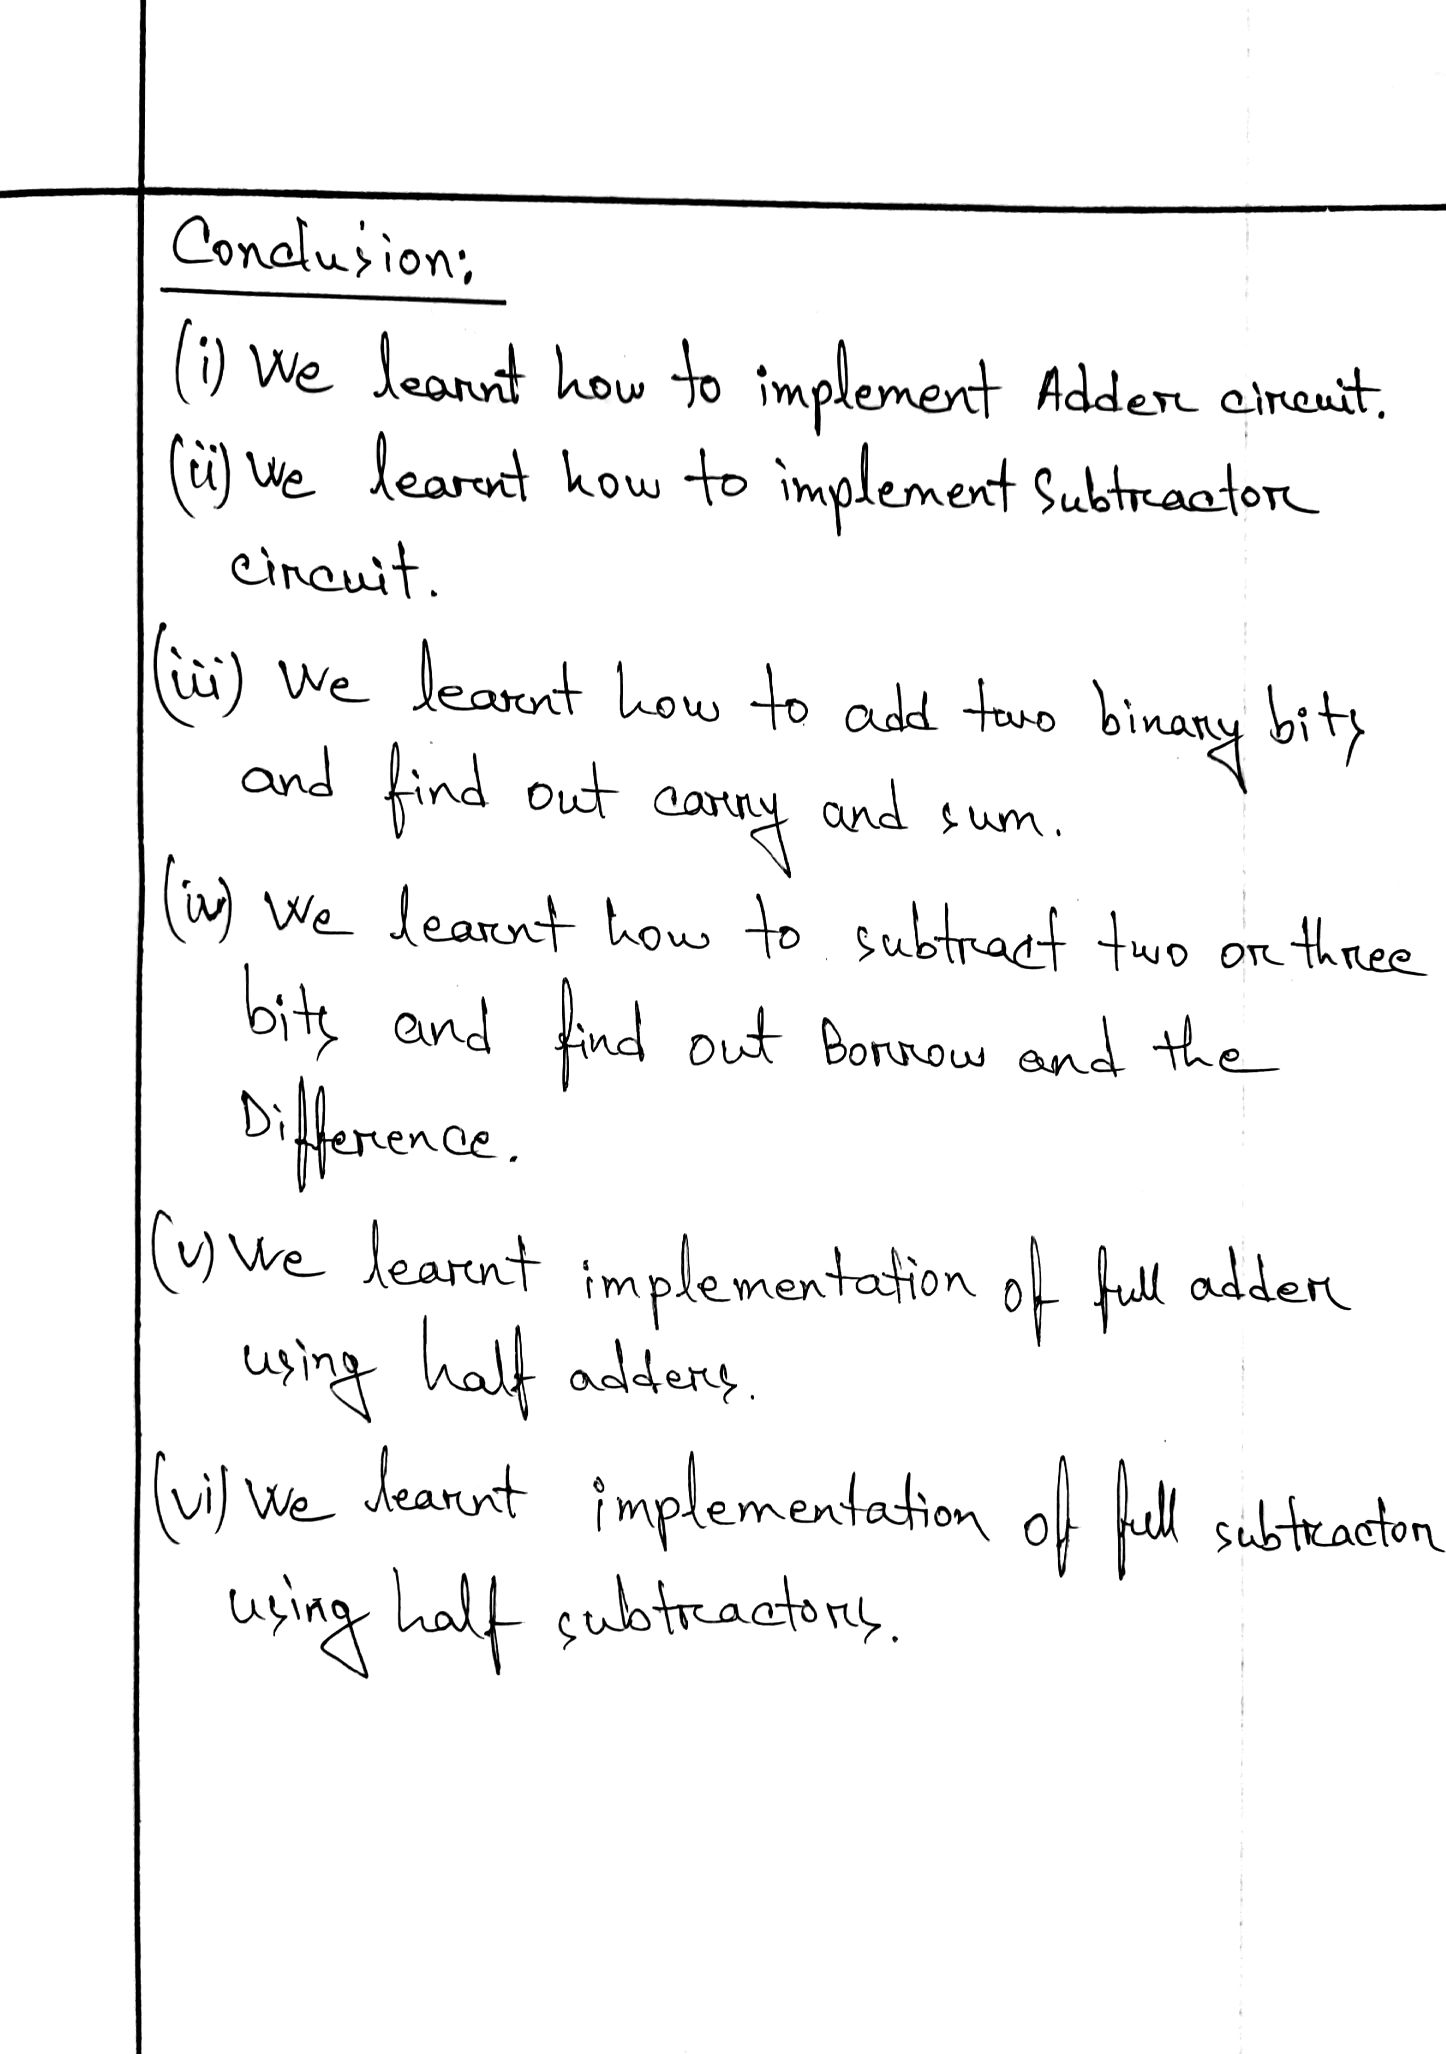 Conclusion:
(i) We learnt how to implement Adder circuit.
(ii) We learnt how to implement Subtractor
circuit.
(iii) We learnt how to add two binary bits
and find out carry and sum.
(iv) We learnt how to subtract two or three
bits and find out Borrow and the
Difference.
(v) We learnt implementation of full adder
using half adders.
(vi) We learnt implementation of full subtractor
using half subtractors.